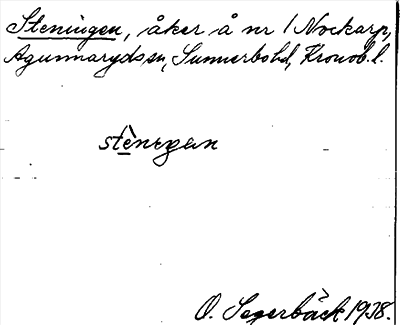 Steningen, åker å nr 1 Nockarp,
Agunnarydssn, Sunnerbohd, Kronob. l.
stènıgan
O. Segerbäck 1938.